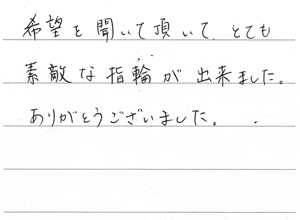 希望を聞いて頂いて、とても
素敵な指輪が出来ました。
ありがとうございました。